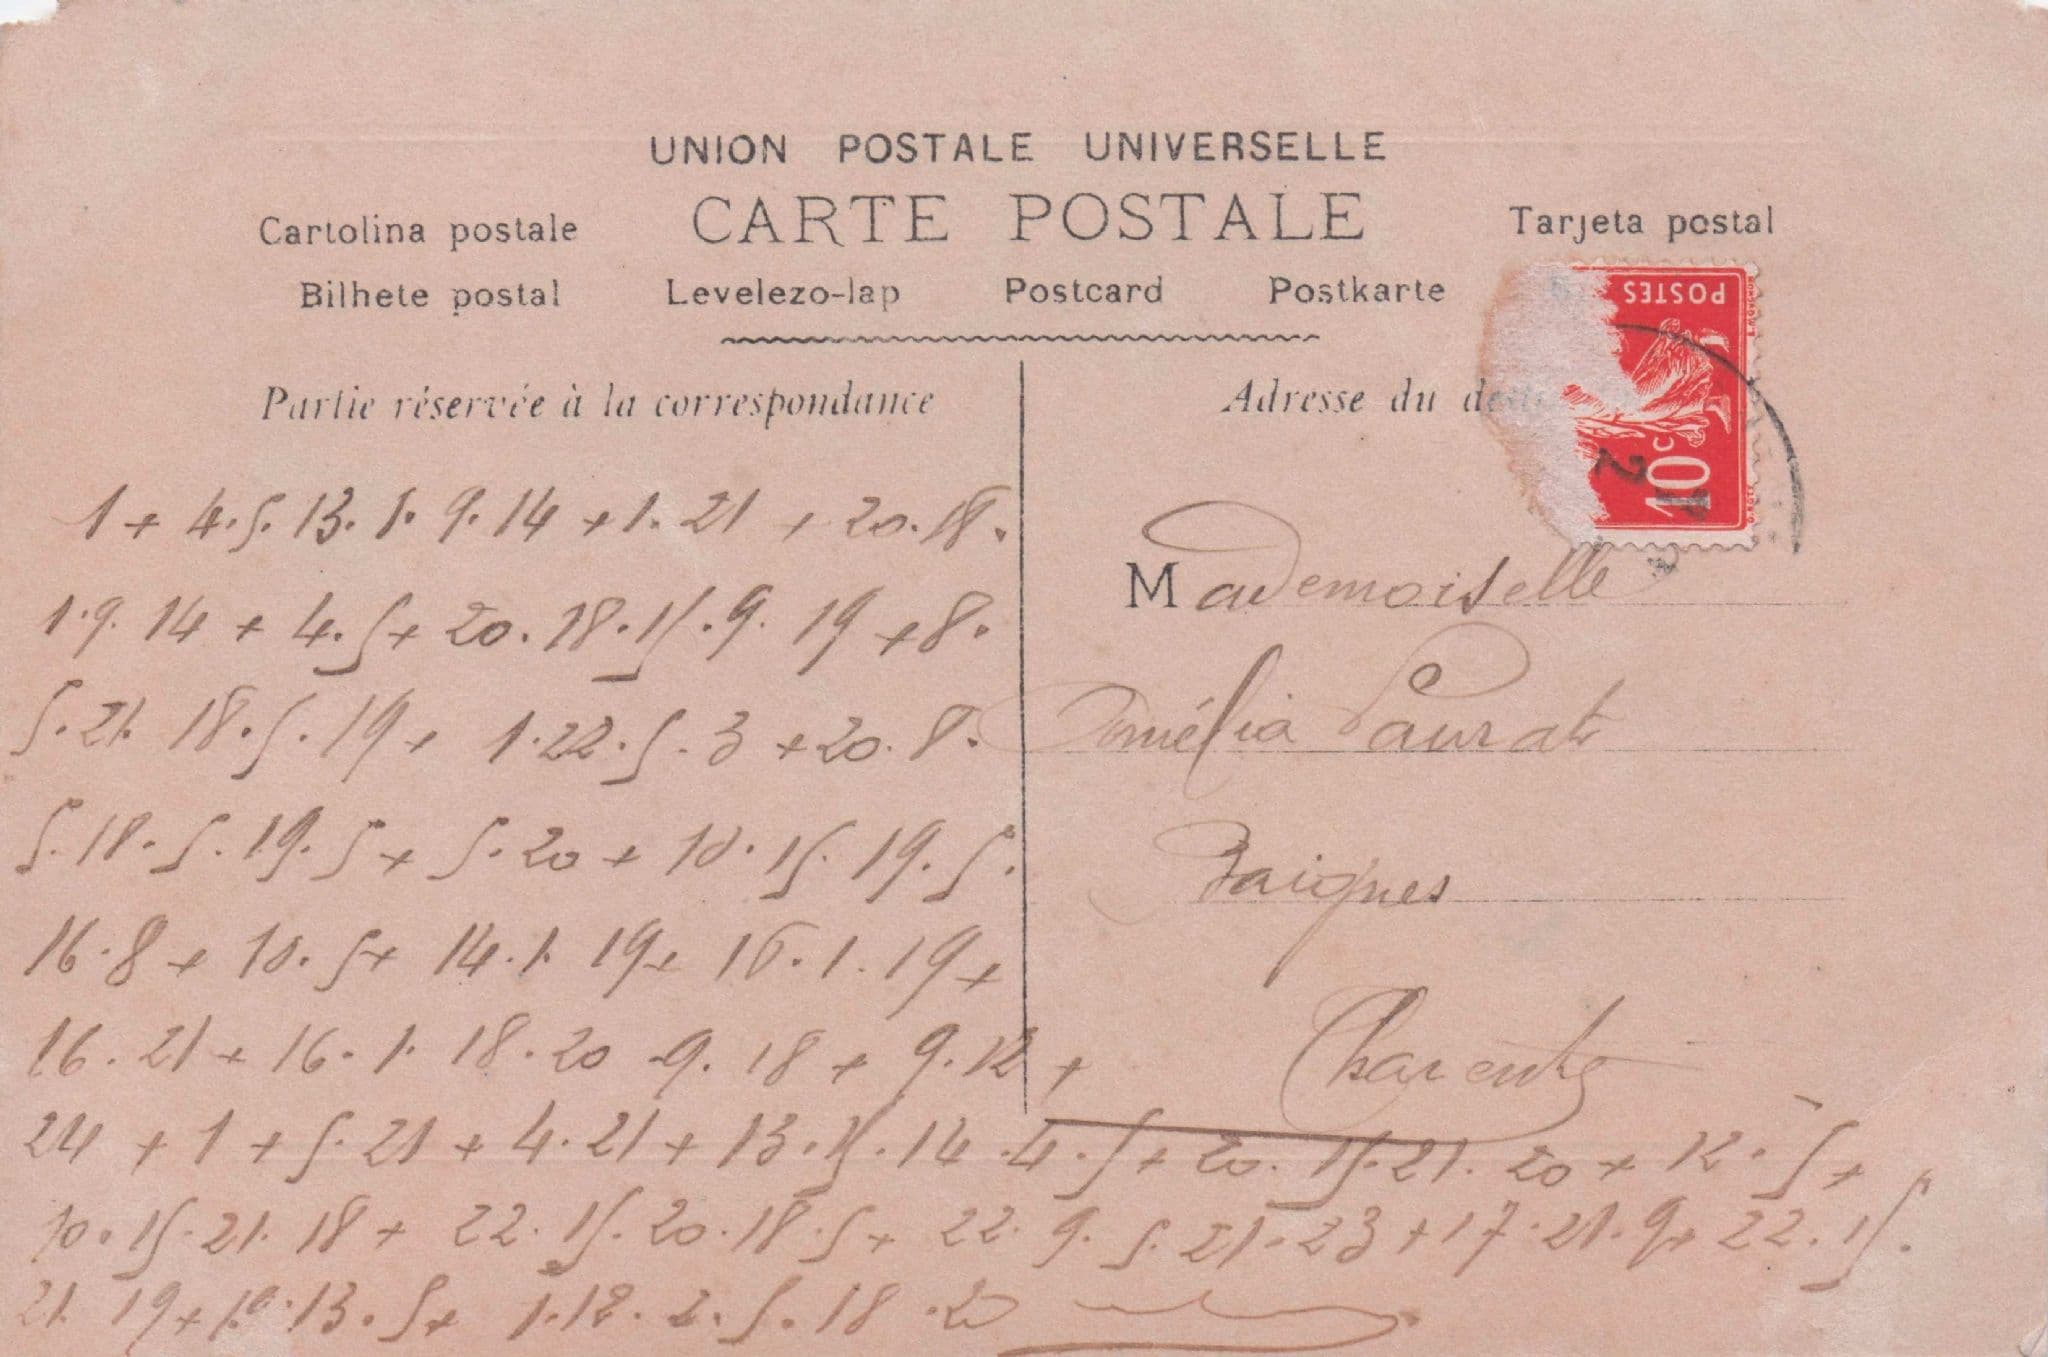 UNION POSTALE UNIVERSELLE
CARTE POSTALE
Cartolina postale
Tarjeta postal
Bilhete postal Levelezo-lap Postcard Postkarte
Partie réservée à la correspondance
1 + 4.5.13.1.9.14 + 1.21 + 20.18.
1.9.14 + 4.5 + 20.18.15.9.19 + 8.
5.21.18.5.19 + 1.22.5.3 + 20.8.
5.18.5.19.5 + 5.20 + 10.15.19.5.
16.8 + 10.5 + 14.1.19 + 16.1.19 +
16.21 + 16.1.18.20.9.18 + 9.12 +
24 + 1 + 5.21 + 4.21 + 13.15.14.4.5 + 20.15.21.20 + 12.5 +
10.15.21.18 + 22.15.20.18.5 + 22.9.5.21.23 + 17.21.9 + 22.15.
21.19 + 1.9.13.5 + 1.12.2.5.18.20
Adresse du
POSTES
10c
Mademoiselle
Amélia Laurat
Baignes
Charente